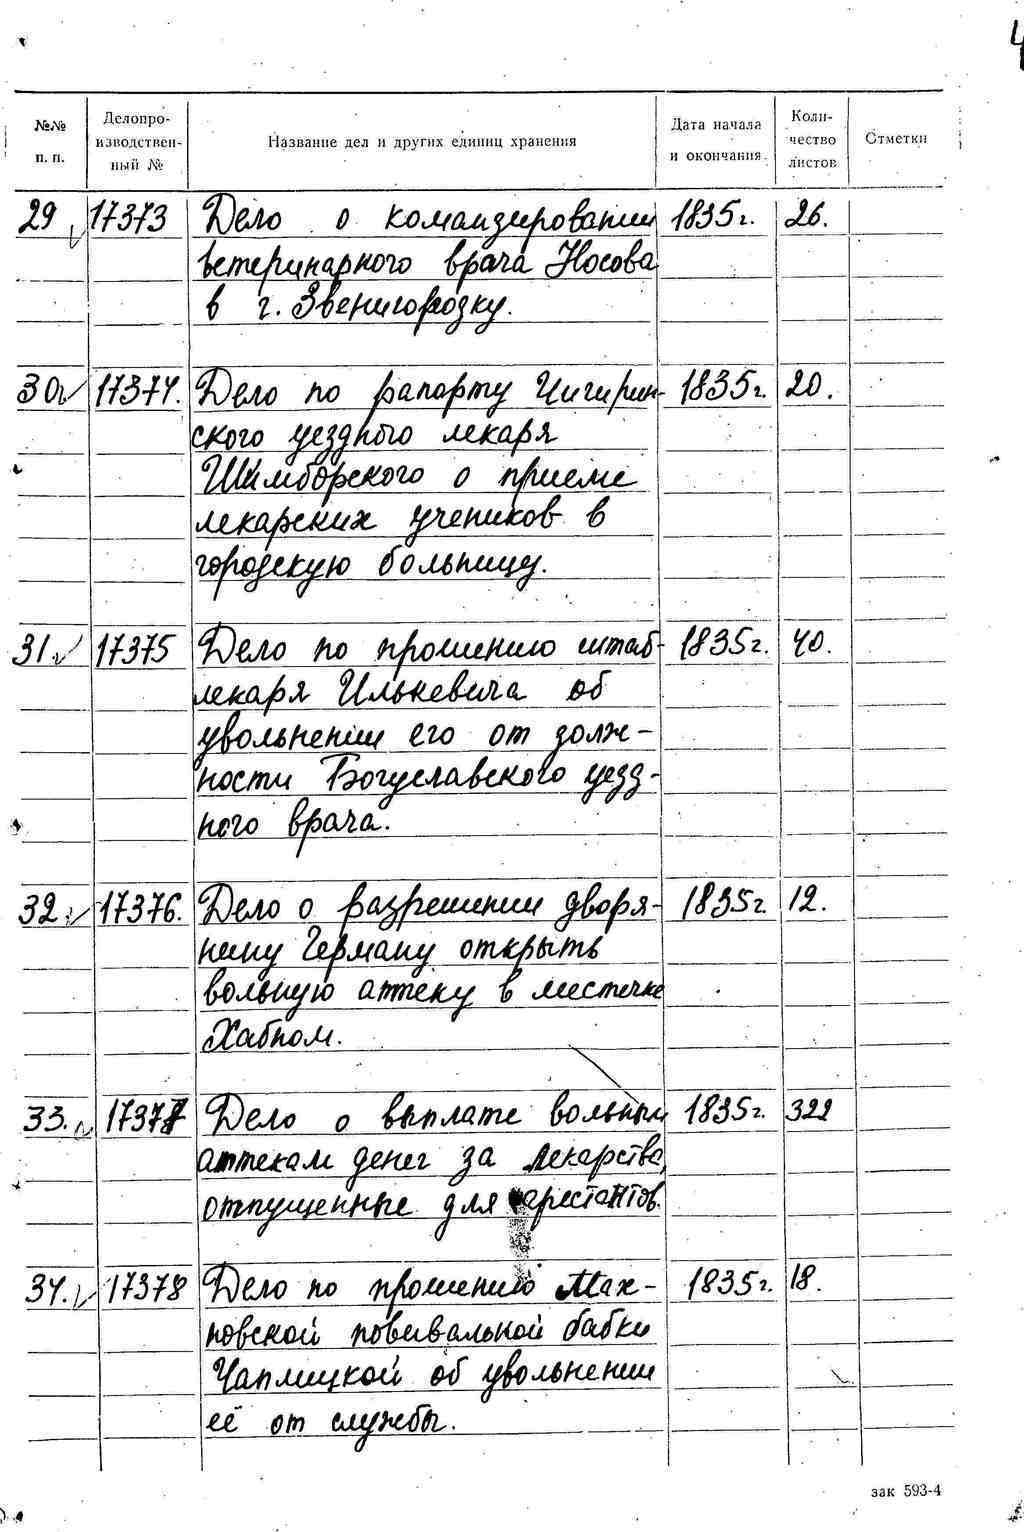 4
№№ п. п. Делопроизводственный № Название дел и других единиц хранения Дата начала и окончания. Количество листов Отметки
29 17373 Дело о командировании 1835г. 26.
ветеринарного врача Носова
в г. Звенигородку.
30 17374. Дело по рапорту Чигирин- 1835г. 20.
ского уездного лекаря
Шимборского о приеме
лекарских учеников в
городскую больницу.
31. 17375 Дело по прошению штаб- 1835г. 40.
лекаря Илькевича об
увольнении его от долж-
ности Богуславского уезд-
ного врача.
32. 17376. Дело о разрешении дворя- 1835г. 12.
нину Герману открыть
вольную аптеку в местечке
Хабном.
33. 17377 Дело о выплате вольным 1835г. 322
аптекам денег за лекарства,
отпущенные для арестантов.
34. 17378 Дело по прошению Мах- 1835г. 18.
новской повивальной бабки
Чаплицкой об увольнении
её от службы.
зак 593-4